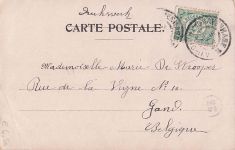 Drukwerk
CARTE POSTALE.
Mademoiselle Marie De Strooper
Rue de la Vigne No 10
Gand.
Belgique